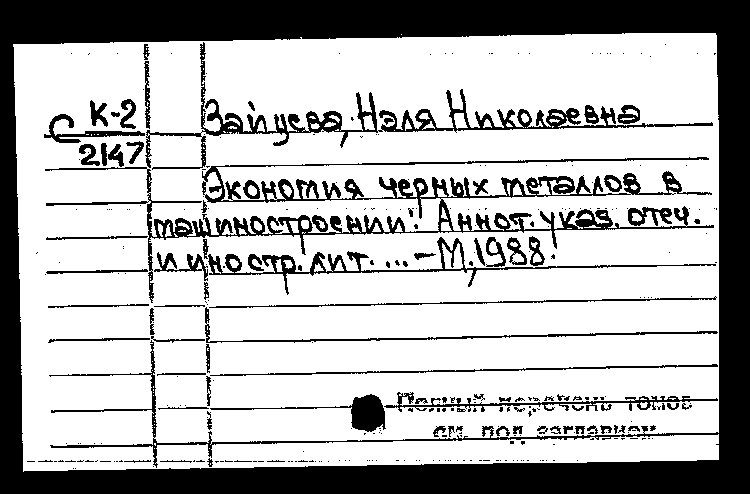 С К-2
2147
Зайцева, Нэля Николаевна
Экономия черных металлов в
машиностроении: Аннот. указ. отеч.
и иностр. лит. ... – М., 1988.
Полный перечень томов
см. под заглавием